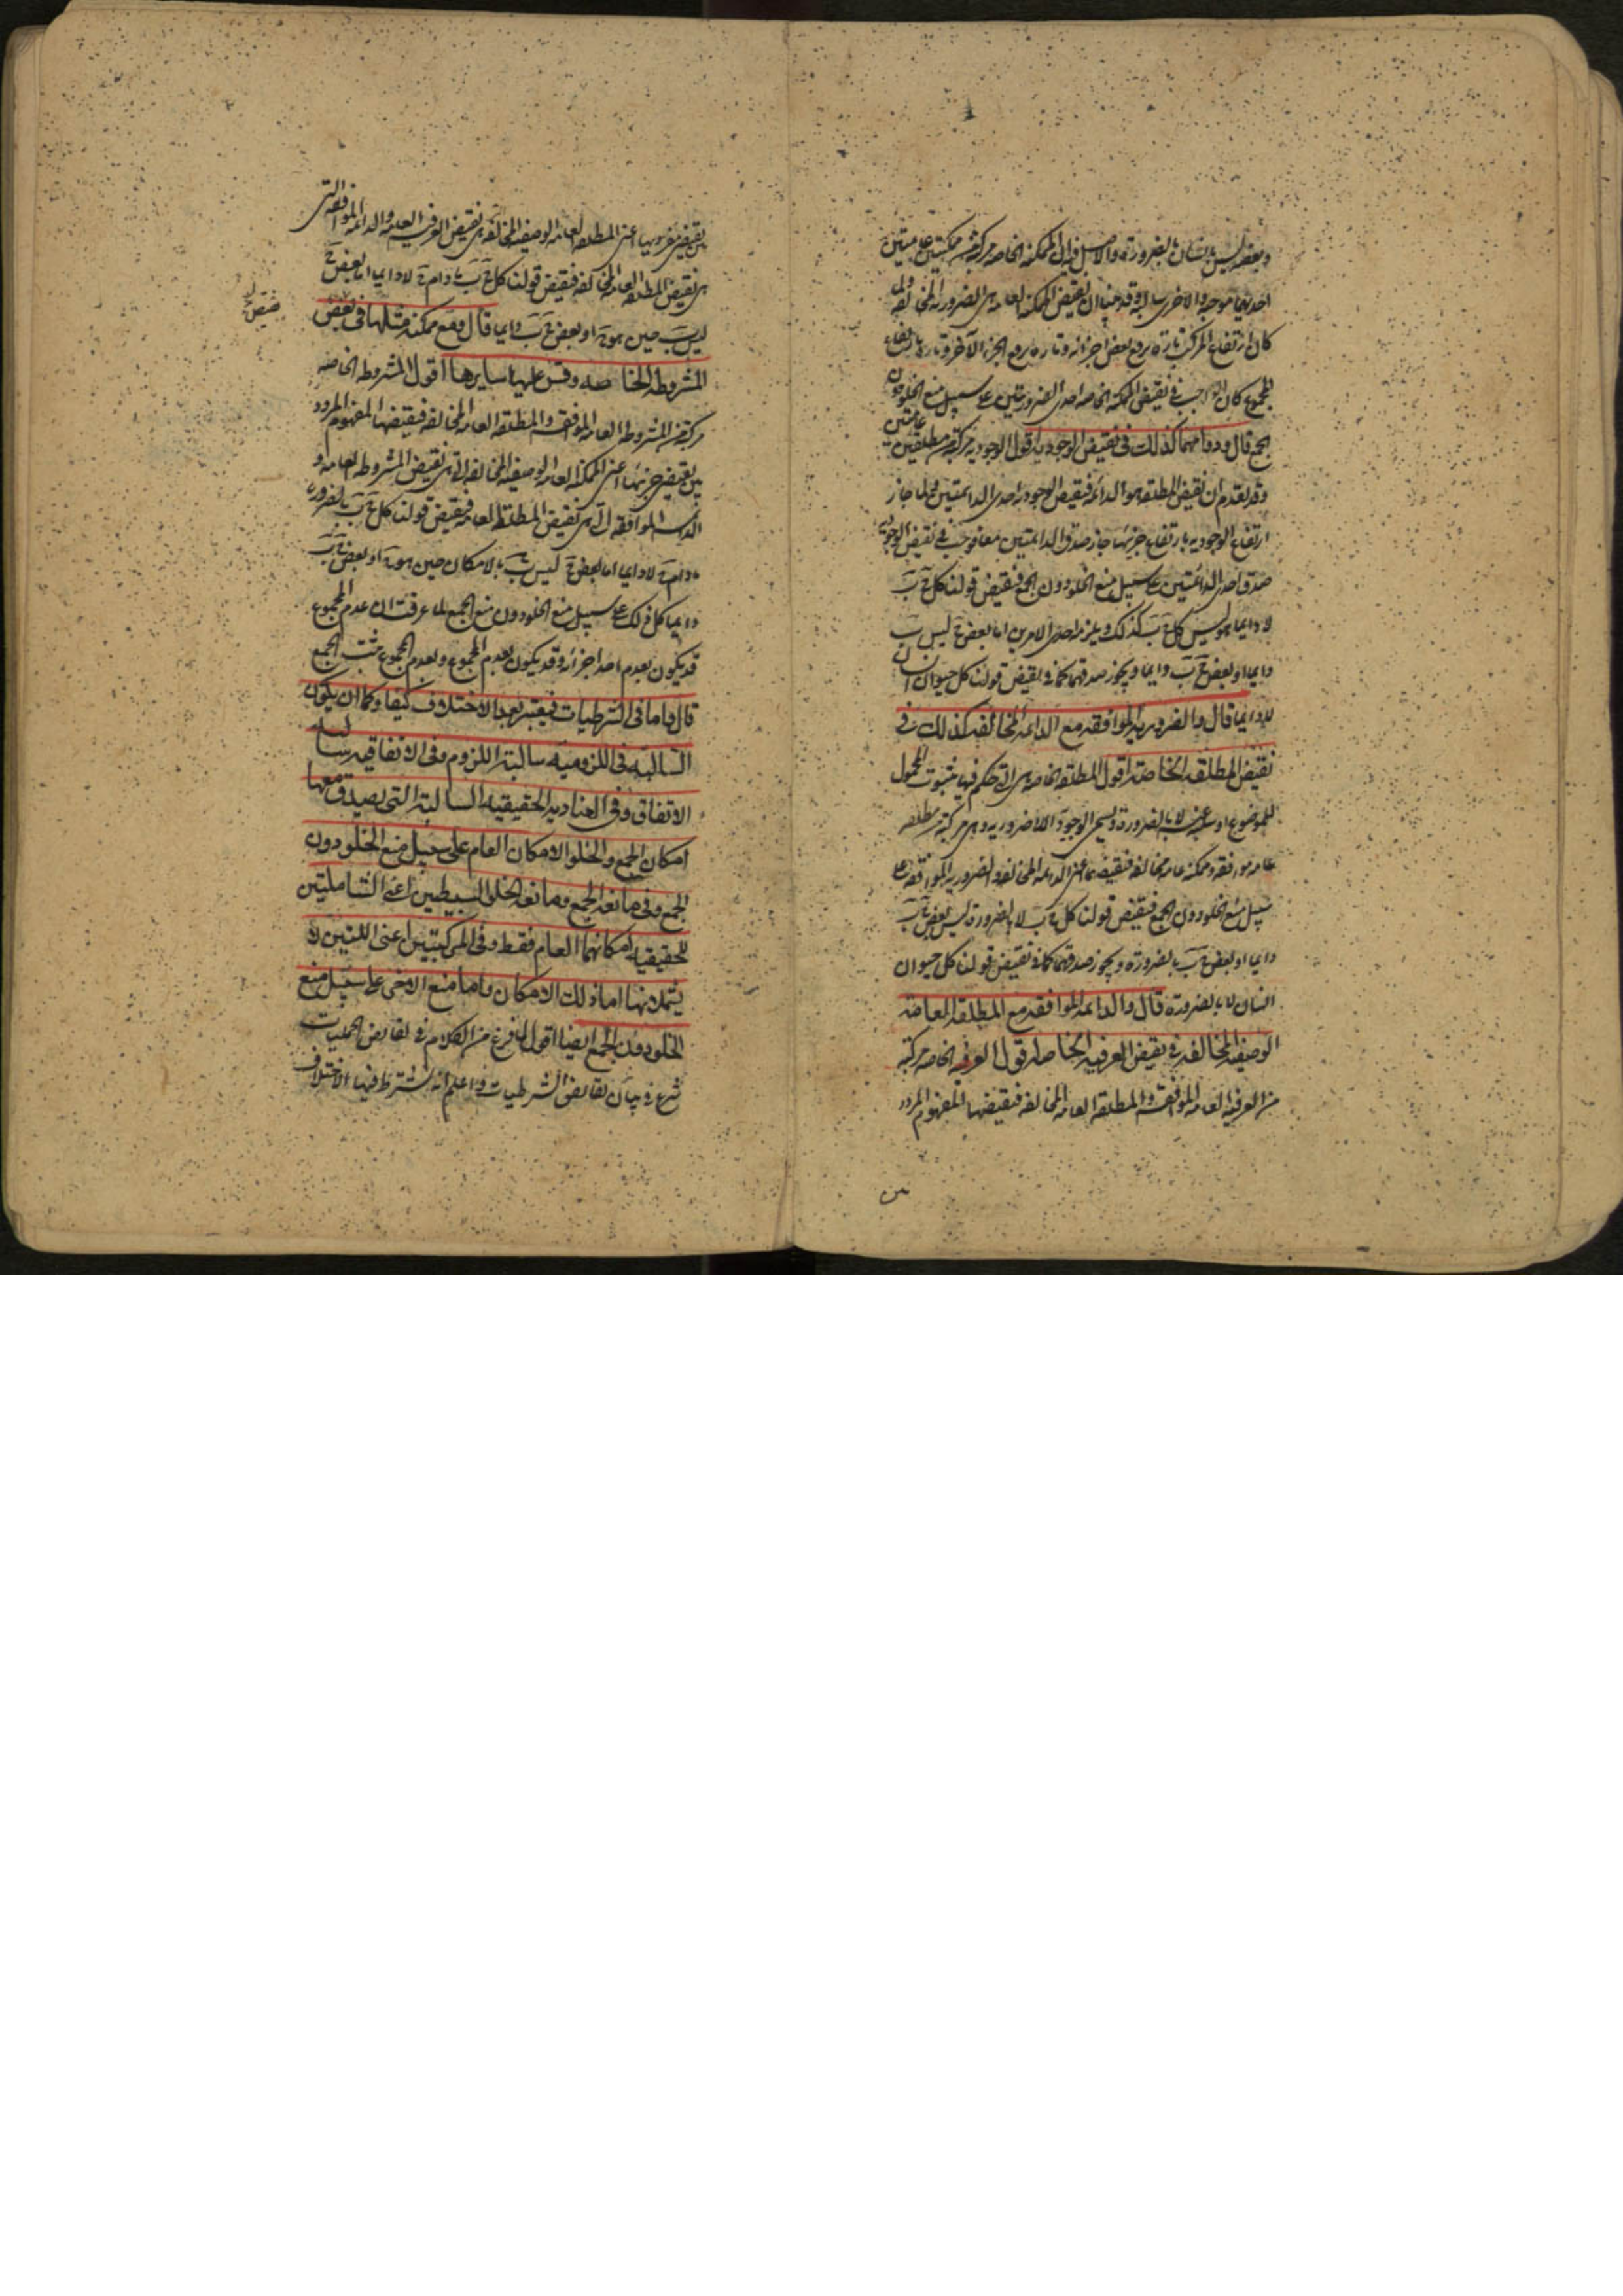 وبعضه ليس بانسان بالضرورة والاصل فيه ان الممكنة الخاصة مركبة من ممكنتين عامتين
احديهما موجبة والاخرى سالبة وقد بينا ان نقيض الممكنة العامة هى الضرورية المخالفة ولما
كان ارتفاع المركب تارة برفع بعض اجزائه وتارة برفع الجزء الآخر وتارة بارتفاع
المجموع كان الواجب فى نقيض الممكنة الخاصة احدى الضروريتين على سبيل منع الخلو دون
الجمع قال ودوامهما كذلك فى نقيض الوجودية اقول الوجودية مركبة من مطلقتين عامتين
وقد تقدم ان نقيض المطلقة هو الدائمة فنقيض الوجودية احدى الدائمتين ولما جاز
ارتفاع الوجودية بارتفاع جزئيها جاز صدق الدائمتين معا فوجب فى نقيض الوجودية
صدق احدى الدائمتين على سبيل منع الخلو دون الجمع فنقيض قولنا كل ج ب
لا دايما هو ليس كل ج ب كذلك ويلزمه احد الامرين اما بعض ج ليس ب
دايما او بعض ج ب دايما ويجوز صدقهما كما فى نقيض قولنا كل حيوان انسان
لا دايما قال والضرورية الموافقة مع الدايمة المخالفة كذلك فى
نقيض المطلقة الخاصة اقول المطلقة الخاصة هى التى حكم فيها بثبوت المحمول
للموضوع او سلبه عنه لا بالضرورة وتسمى الوجودية اللاضرورية وهى مركبة من مطلقة
عامة موافقة وممكنة عامة مخالفة فنقيضها اعنى الدائمة المخالفة والضرورية الموافقة على
سبيل منع الخلو دون الجمع فنقيض قولنا كل ج ب لا بالضرورة ليس بعض ج ب
دايما او بعض ج ب بالضرورة ويجوز صدقهما كما فى نقيض قولنا كل حيوان
انسان لا بالضرورة قال والدايمة الموافقة مع المطلقة العامة
الوصفية المخالفة فى نقيض العرفية الخاصة اقول العرفية الخاصة مركبة
من العرفية العامة الموافقة والمطلقة العامة المخالفة فنقيضها المفهوم المردد
بين نقيضى جزويها اعنى المطلقة العامة الوصفية المخالفة هى نقيض العرفية العامة والدائمة الموافقة التى
هى نقيض المطلقة العامة المخالفة فنقيض قولنا كل ج ب ما دام ج لا دايما اما بعض ج
ليس ب حين هو ج او بعض ج ب دايما قال ومع ممكنة مثلها فى بعض
نقيض
المشروطة الخاصة وقس عليها سايرها اقول المشروطة الخاصة
مركبة من المشروطة العامة الموافقة والمطلقة العامة المخالفة فنقيضها المفهوم المردد
بين نقيضى جزئيها اعنى الممكنة العامة الوصفية المخالفة التى هى نقيض المشروطة العامة و
الدائمة الموافقة التى هى نقيض المطلقة العامة فنقيض قولنا كل ج ب بالضرورة
ما دام ج لا دايما اما بعض ج ليس ب بالامكان حين هو ج او بعض ج ب
دايما كل ذلك على سبيل منع الخلو دون منع الجمع لما عرفت ان عدم المجموع
قد يكون بعدم احد اجزائه وقد يكون بعدم المجموع وبعدم المجموع يثبت الجمع
قال واما فى الشرطيات فيعتبر بعد الاختلاف كيفا وكما ان يكون
السالبة فى اللزومية سالبة اللزوم وفى الاتفاقية سالبة
الاتفاق وفى العنادية الحقيقية السالبة التى يصدق معها
امكان الجمع والخلو الامكان العام على سبيل منع الخلو دون
الجمع وفى مانعة الجمع ومانعة الخلو البسيطين اعنى الشاملتين
للحقيقية امكانهما العام فقط وفى المركبتين اعنى اللتين لا
يشملانها اما ذلك الامكان واما منع الاخرى على سبيل منع
الخلو دون الجمع ايضا اقول لما فرغ من الكلام فى نقايض الحمليات
شرع فى بيان نقايض الشرطيات واعلم انه يشترط فيها الاختلاف